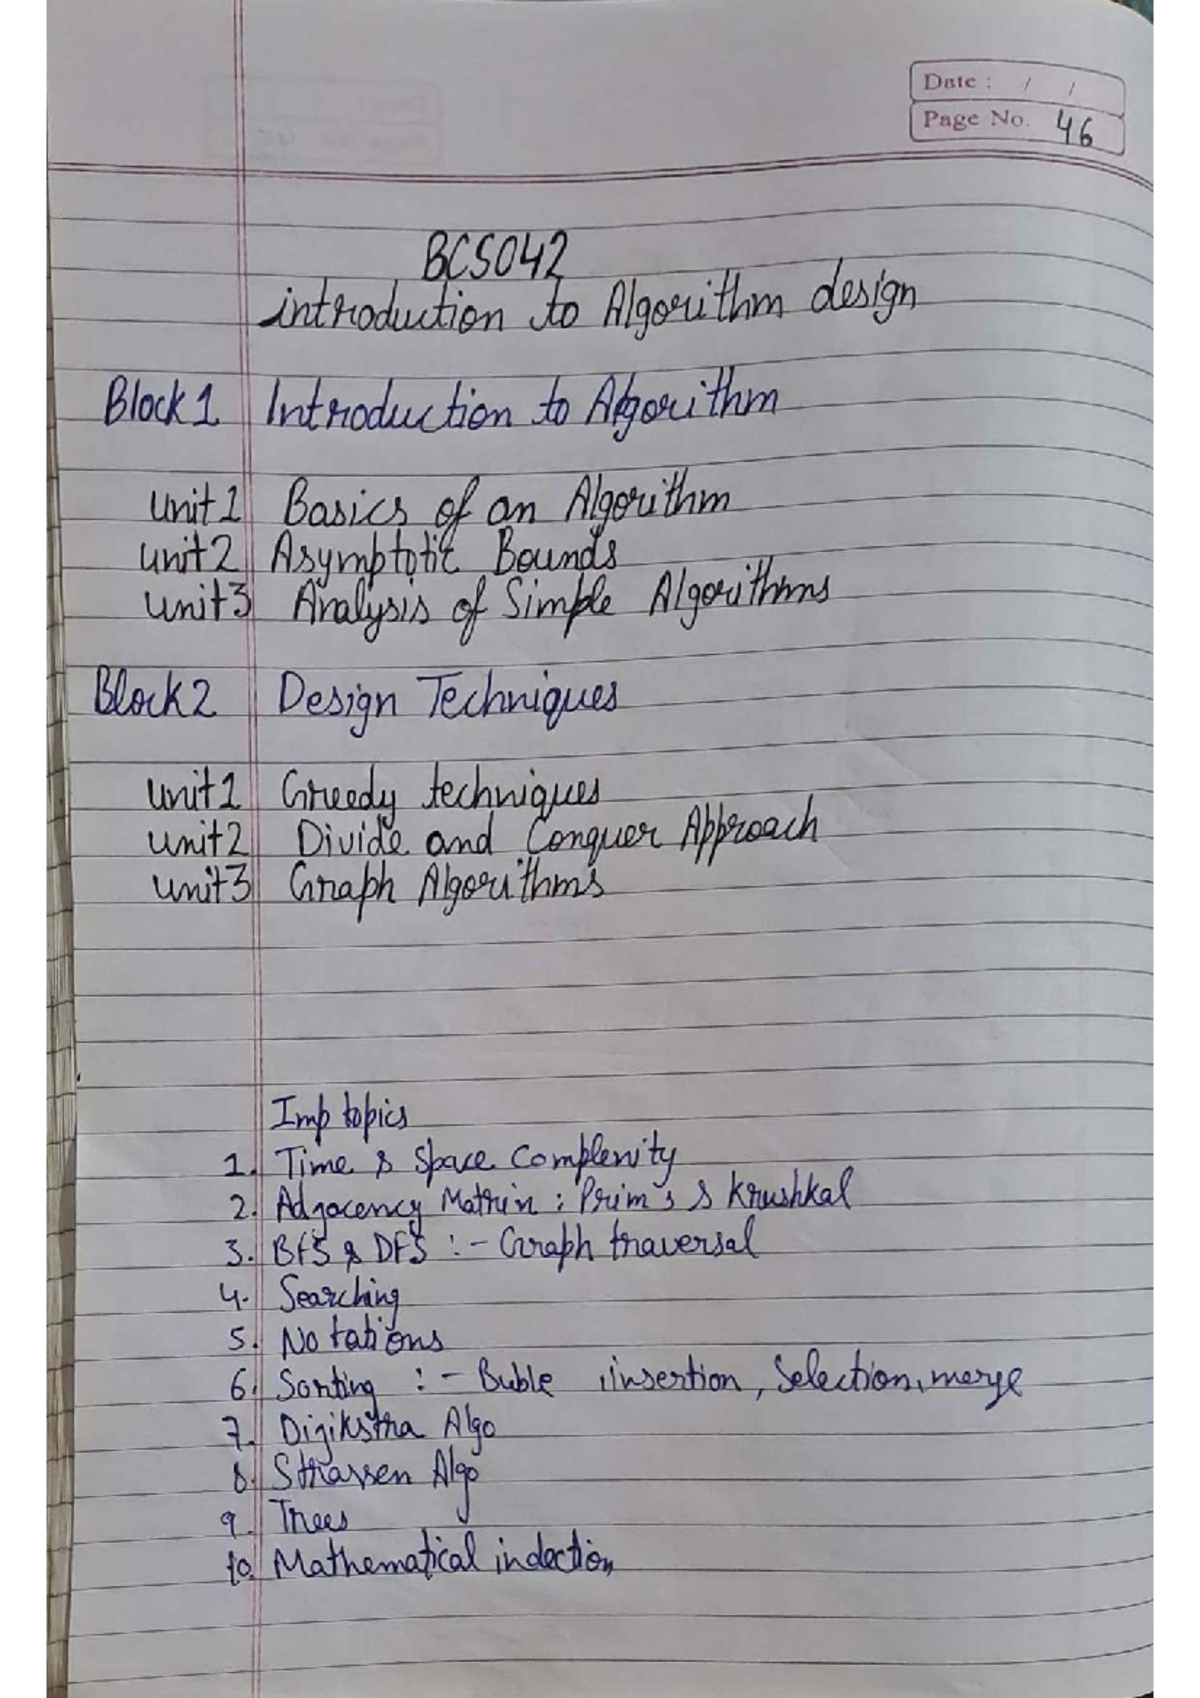 Date : / /
Page No. 46
BCS042
introduction to Algorithm design
Block 1 Introduction to Algorithm
Unit 1 Basics of an Algorithm
Unit 2 Asymptotic Bounds
Unit 3 Analysis of Simple Algorithms
Block 2 Design Techniques
Unit 1 Greedy techniques
Unit 2 Divide and Conquer Approach
Unit 3 Graph Algorithms
Imp topics
1. Time & Space Complexity
2. Adjacency Matrix : Prim's & Krushkal
3. BFS & DFS :- Graph traversal
4. Searching
5. Notations
6. Sorting :- Buble , insertion, Selection, merge
7. Dijikstra Algo
8. Strassen Algo
9. Trees
10. Mathematical indection